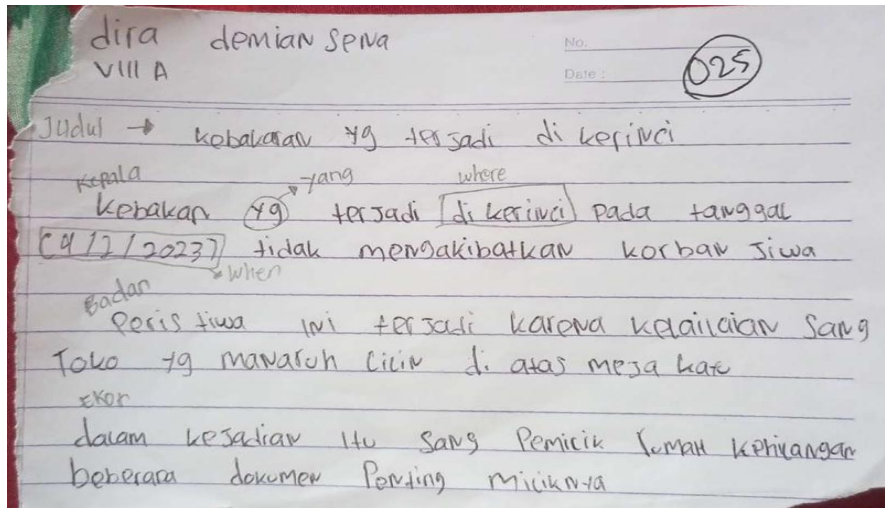 dira demian sena
VIII A
No.
Date :
025
Judul → kebakaran yg terjadi di kerinci
Kepala yang where
kebakan yg terjadi di kerinci pada tanggal
(9/2/2023) tidak mengakibatkan korban jiwa
when
Badan
Peristiwa ini terjadi karena kelailaian sang
Toko yg manaruh lilin di atas meja
EKor
dalam kejadian itu sang Pemilik rumah kehilangan
beberapa dokumen Penting miliknya